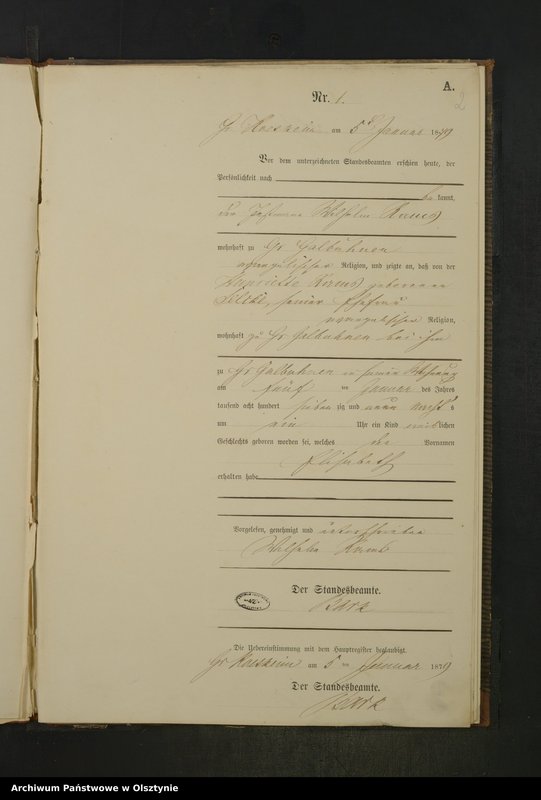 A.
2
Nr. 1.
am 5 Januar 1879
Vor dem unterzeichneten Standesbeamten erschien heute, der
Persönlichkeit nach
be kannt,
der Wilhelm
wohnhaft zu Gr. Galbuhnen
evangelischer Religion, und zeigte an, daß von der
Henriette geborenen
seiner Ehefrau
evangelischer Religion,
wohnhaft zu Gr. Galbuhnen bei ihm
zu Gr. Galbuhnen in seiner Wohnung
am fünf ten Januar des Jahres
tausend acht hundert sieben zig und neun Nachts
um ein Uhr ein Kind weiblichen
Geschlechts geboren worden sei, welches den Vornamen
Elisabeth
erhalten habe
Vorgelesen, genehmigt und unterschrieben
Wilhelm
Der Standesbeamte.
Die Uebereinstimmung mit dem Hauptregister beglaubigt.
am 5 ten Januar 1879
Der Standesbeamte.
Archiwum Państwowe w Olsztynie